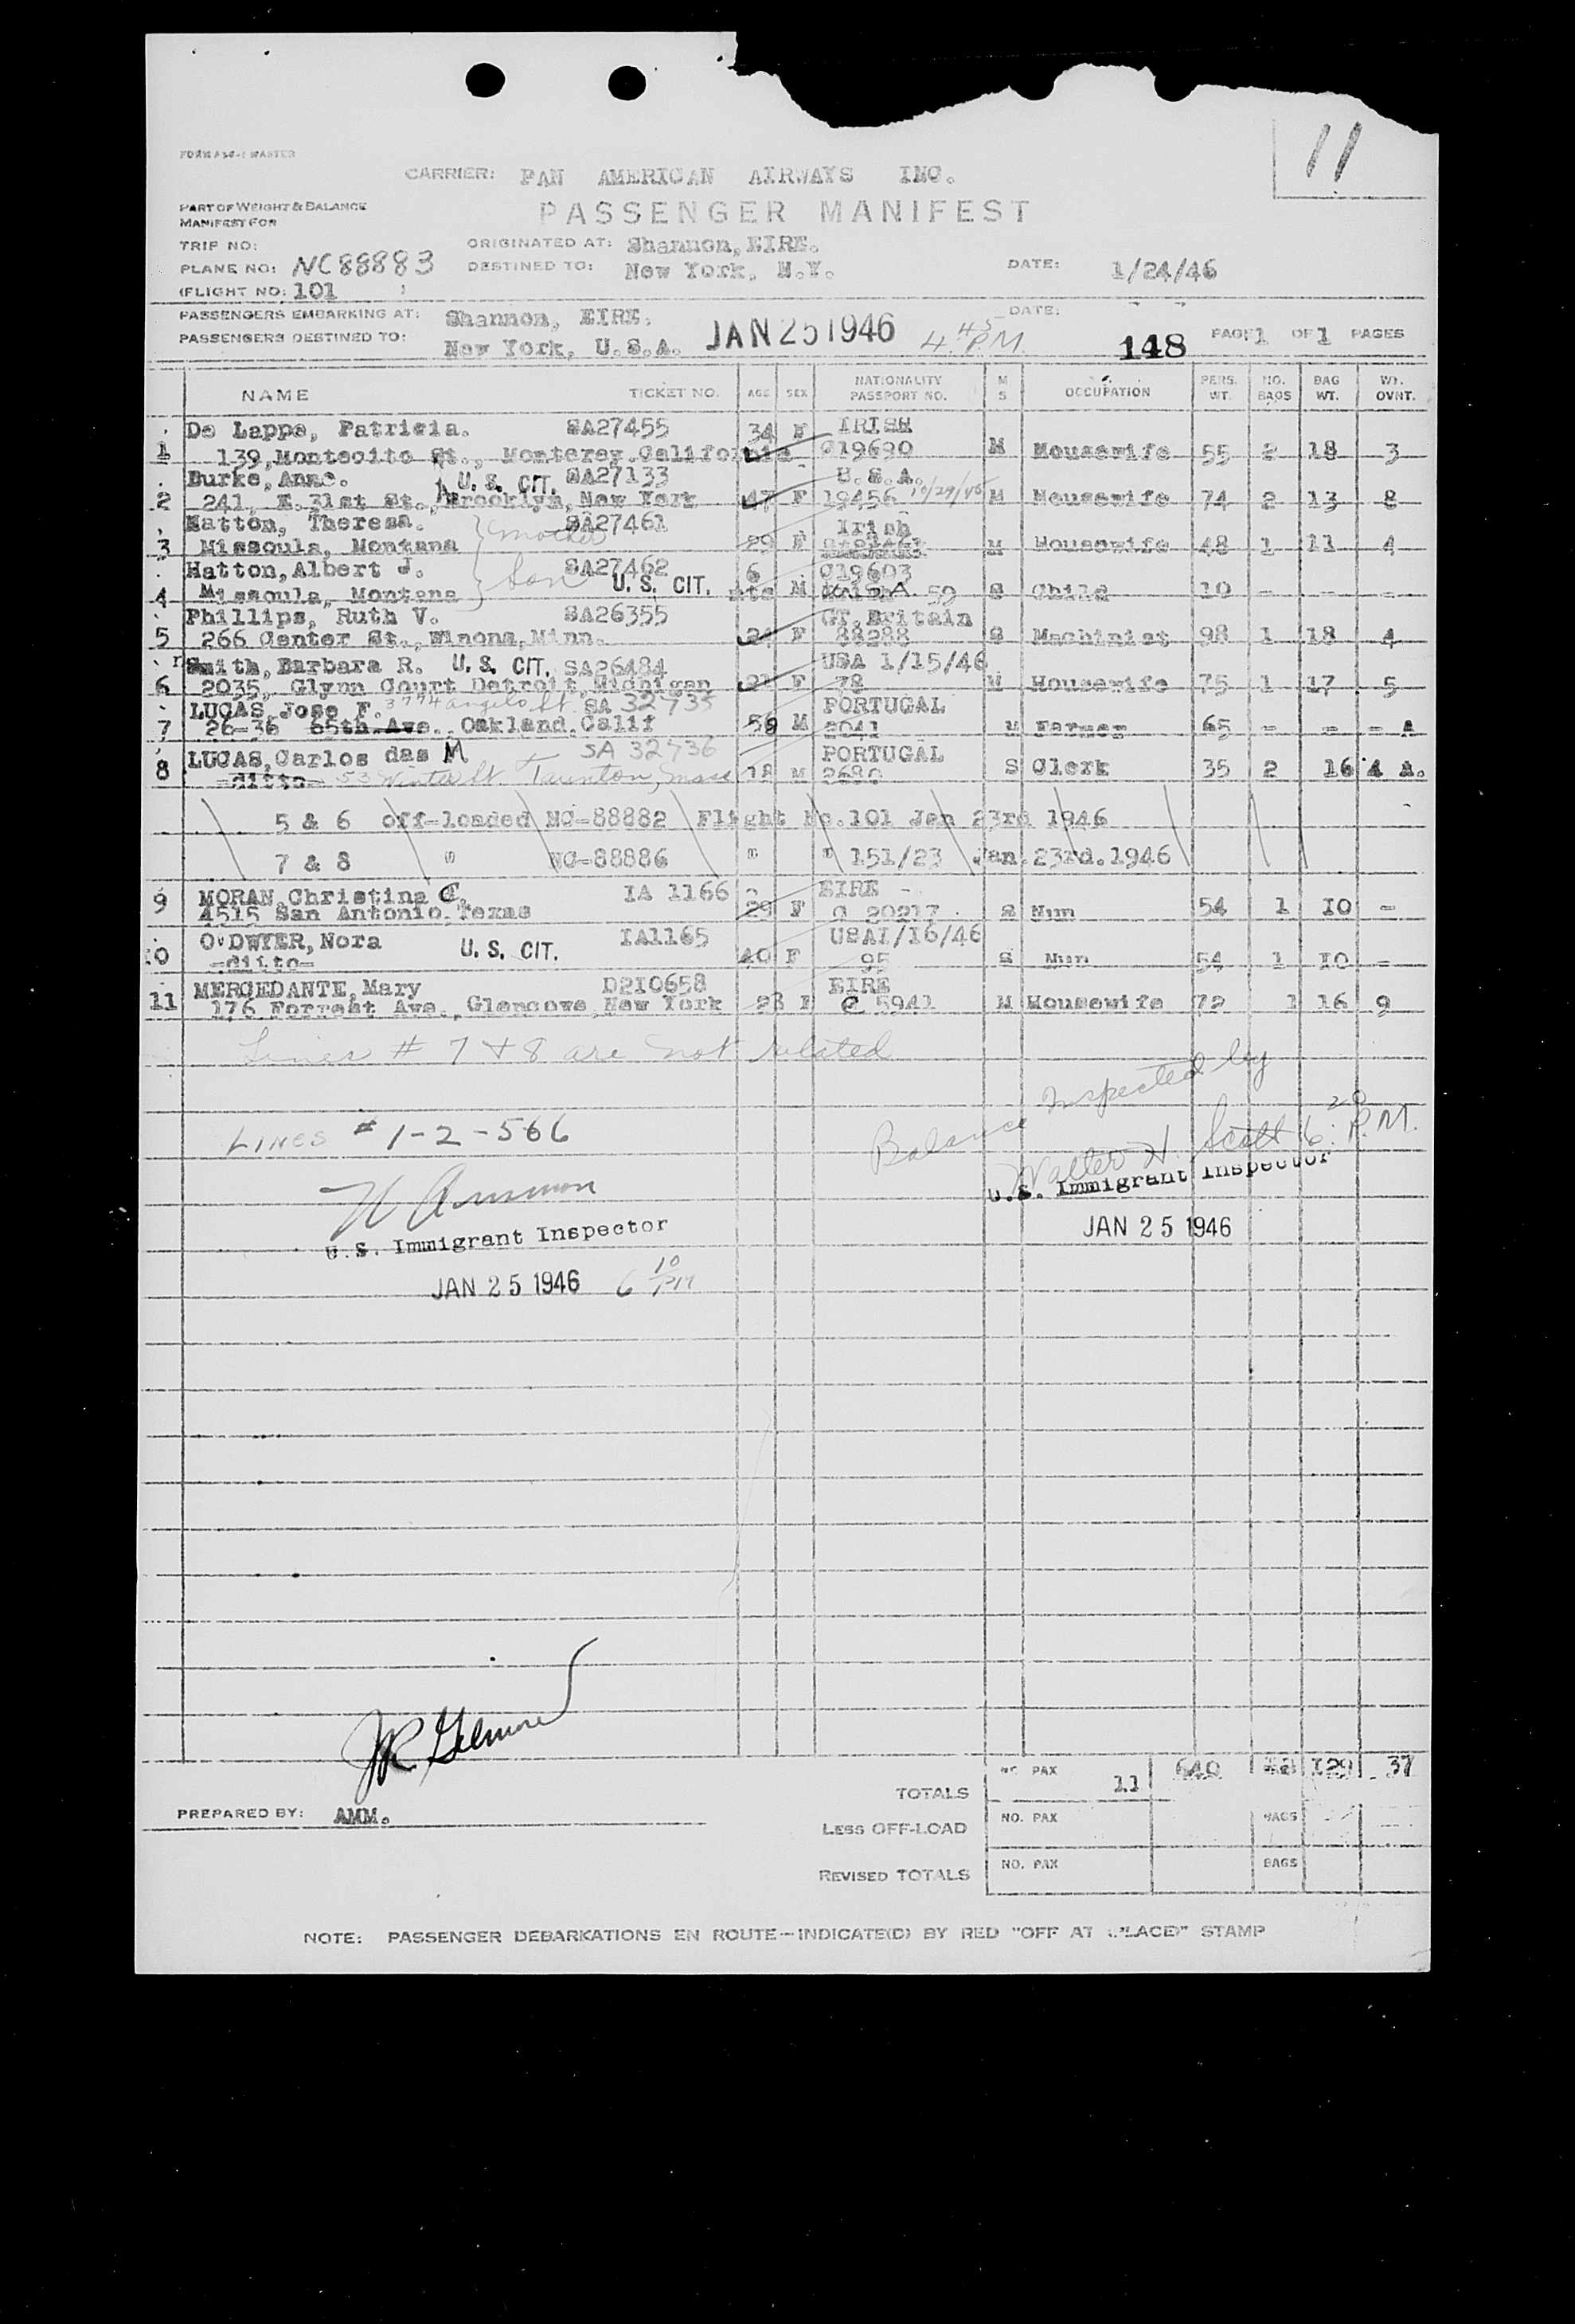 11
FORM A30-1 MASTER
CARRIER: PAN AMERICAN AIRWAYS INC.
PART OF WEIGHT & BALANCE
MANIFEST FOR
PASSENGER MANIFEST
TRIP NO: ORIGINATED AT: Shannon, EIRE.
PLANE NO: NC88883 DESTINED TO: New York, N.Y. DATE: 1/24/46
(FLIGHT NO: 101 )
PASSENGERS EMBARKING AT: Shannon, EIRE. DATE:
PASSENGERS DESTINED TO: New York, U.S.A. JAN 25 1946 4.45 P.M. 148 PAGE 1 OF 1 PAGES
NAME TICKET NO. AGE SEX NATIONALITY PASSPORT NO. M S OCCUPATION PERS. WT. NO. BAGS BAG WT. WT. OVNT.
De Lappe, Patricia. SA27455 34 F IRISH
1 139, Montecito St., Monterey. California C19690 M Housewife 55 2 18 3
Burke, Anne. U. S. CIT. SA27133 U.S.A.
2 241, E. 31st St., Brooklyn, New York 47 F 19456 10/29/45 M Housewife 74 2 13 8
Hatton, Theresa. mother SA27461 Irish
3 Missoula, Montana 29 F M Housewife 48 1 11 4
Hatton, Albert J. Son SA27462 6 C19603
4 Missoula, Montana U. S. CIT. mts M U.S.A. 59 S Child 10 - - -
Phillips, Ruth V. SA26355 GT. Britain
5 266 Center St., Winona, Minn. 24 F 88288 S Machinist 98 1 18 4
Smith, Barbara R. U. S. CIT. SA26484 USA 1/15/46
6 2035, Glynn Court Detroit, Michigan F 78 M Housewife 75 1 17 5
LUCAS, Jose F. 3774 Angelo St. SA 32735 PORTUGAL
7 26-36 65th. Ave. Oakland, Calif 56 M 2041 M Farmer 65 - - - A
LUCAS, Carlos das M SA 32736 PORTUGAL
8 -ditto- 53 Winter St. Taunton, Mass 18 M 2680 S Clerk 35 2 16 4 A.
5 & 6 off-loaded NC-88882 Flight No. 101 Jan 23rd 1946
7 & 8 " NC-88886 " " 151/23 Jan. 23rd. 1946
9 MORAN, Christina C. IA 1166 EIRE
4515 San Antonio, Texas 29 F C 20217 S Nun 54 1 I0 -
O'DWYER, Nora IA1165 USA I/I6/46
10 -ditto- U. S. CIT. 40 F 95 S Nun 54 1 I0 -
MERCEDANTE, Mary D2I0658 EIRE
11 176 Forrest Ave., Glencove, New York 28 F C 5941 M Housewife 72 1 16 9
Lines # 7 & 8 are not related
Balance inspected by
LINES # 1-2-5 & 6
Walter H. Scott 6:20 P.M.
U.S. Immigrant Inspector
JAN 25 1946
U.S. Immigrant Inspector
JAN 25 1946 6 10 PM
JR Gilmore
TOTALS NO. PAX 11 640 I29 37
PREPARED BY: AMM.
LESS OFF-LOAD NO. PAX BAGS
REVISED TOTALS NO. PAX BAGS
NOTE: PASSENGER DEBARKATIONS EN ROUTE—INDICATE(D) BY RED "OFF AT (PLACE)" STAMP